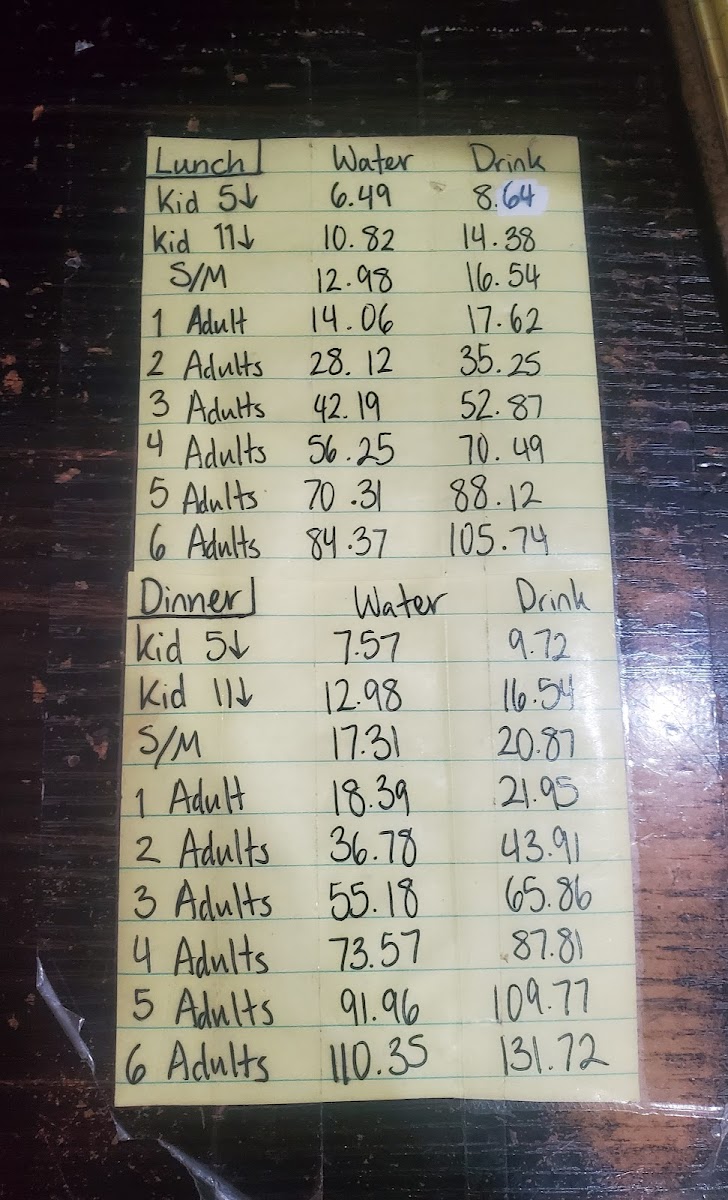 Lunch Water Drink
Kid 5↓ 6.49 8.64
Kid 11↓ 10.82 14.38
S/M 12.98 16.54
1 Adult 14.06 17.62
2 Adults 28.12 35.25
3 Adults 42.19 52.87
4 Adults 56.25 70.49
5 Adults 70.31 88.12
6 Adults 84.37 105.74
Dinner Water Drink
Kid 5↓ 7.57 9.72
Kid 11↓ 12.98 16.54
S/M 17.31 20.87
1 Adult 18.39 21.95
2 Adults 36.78 43.91
3 Adults 55.18 65.86
4 Adults 73.57 87.81
5 Adults 91.96 109.77
6 Adults 110.35 131.72